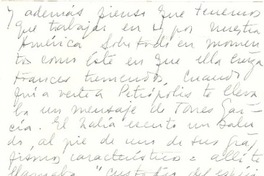 y además pienso que tenemos
que trabajar en y por nuestra
América sobre todo en momen
tos como éste en que ella cruza
trances tremendos. Cuando
fuí a verte a Petrópolis te lleva
ba un mensaje de Torres Gar
cía. El había escrito un salu
do, al pie de uno de sus
característico: allí te
llamaba "Custodia del espíri